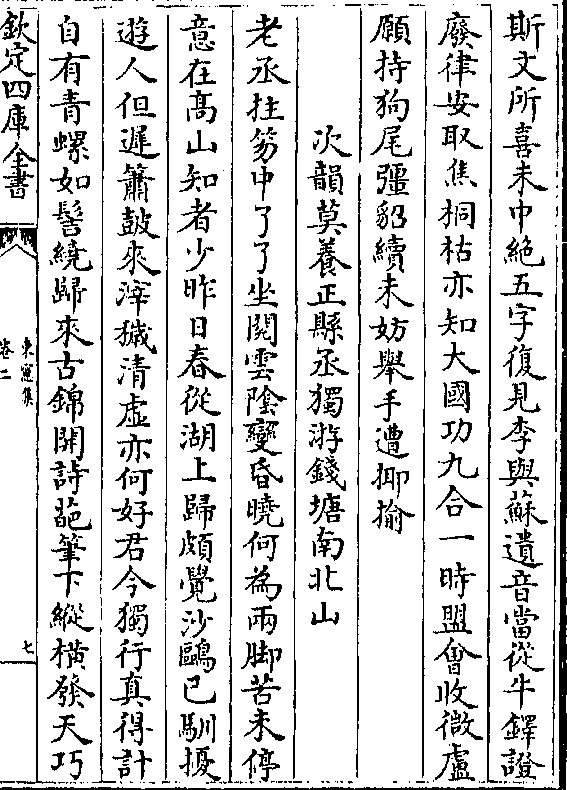 斯文所喜未中絶五字復見李與蘇遺音當從牛鐸證
廢律安取焦桐枯亦知大國功九合一時盟㑹收微盧
願持狗尾彊貂續未妨舉手遭揶揄
次韻莫養正縣丞獨游錢塘南北山
老丞拄笏中了了坐閱雲陰變昏曉何為兩脚苦未停
意在髙山知者少昨日春從湖上歸頗覺沙鷗已馴擾
遊人但遲簫鼓來滓穢清虚亦何好君今獨行真得計
自有青螺如髻繞歸來古錦開詩葩筆下縱橫發天巧
欽定四庫全書
東窻集
卷二
七